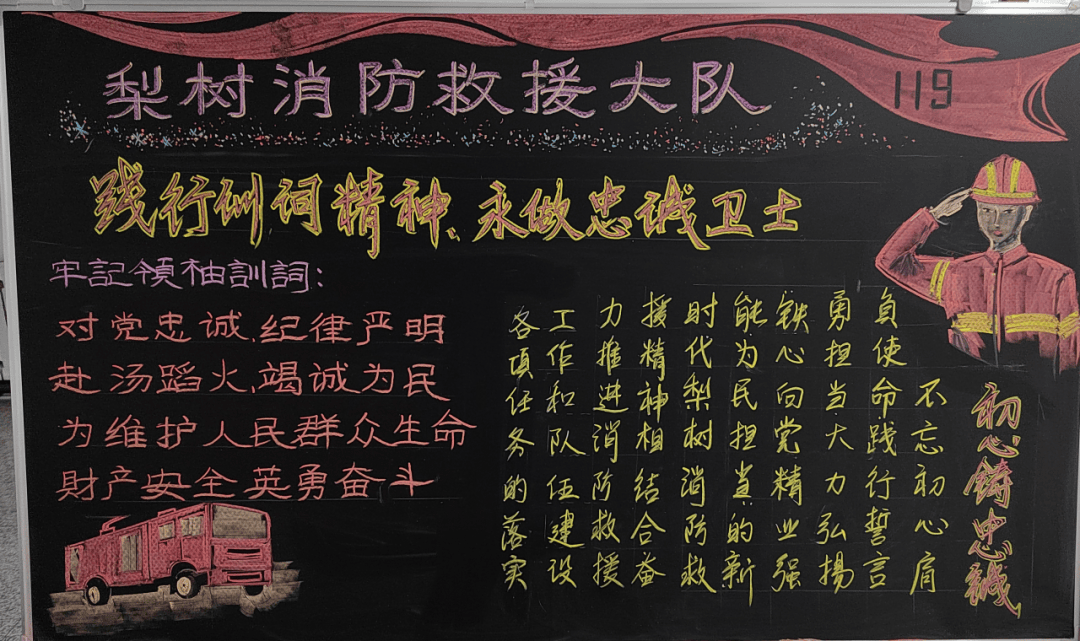 梨树消防救援大队
119
践行训词精神、永做忠诚卫士
牢記領袖訓詞：
对党忠诚、纪律严明
赴汤蹈火、竭诚为民
为维护人民群众生命
財产安全英勇奋斗
初心铸忠诚
不忘初心肩
负使命践行誓言
勇担当大力弘揚
铁心向党精业强
能为民担当的新
时代梨树消防救
援精神相结合奋
力推进消防救援
工作和队伍建设
各项任务的落实